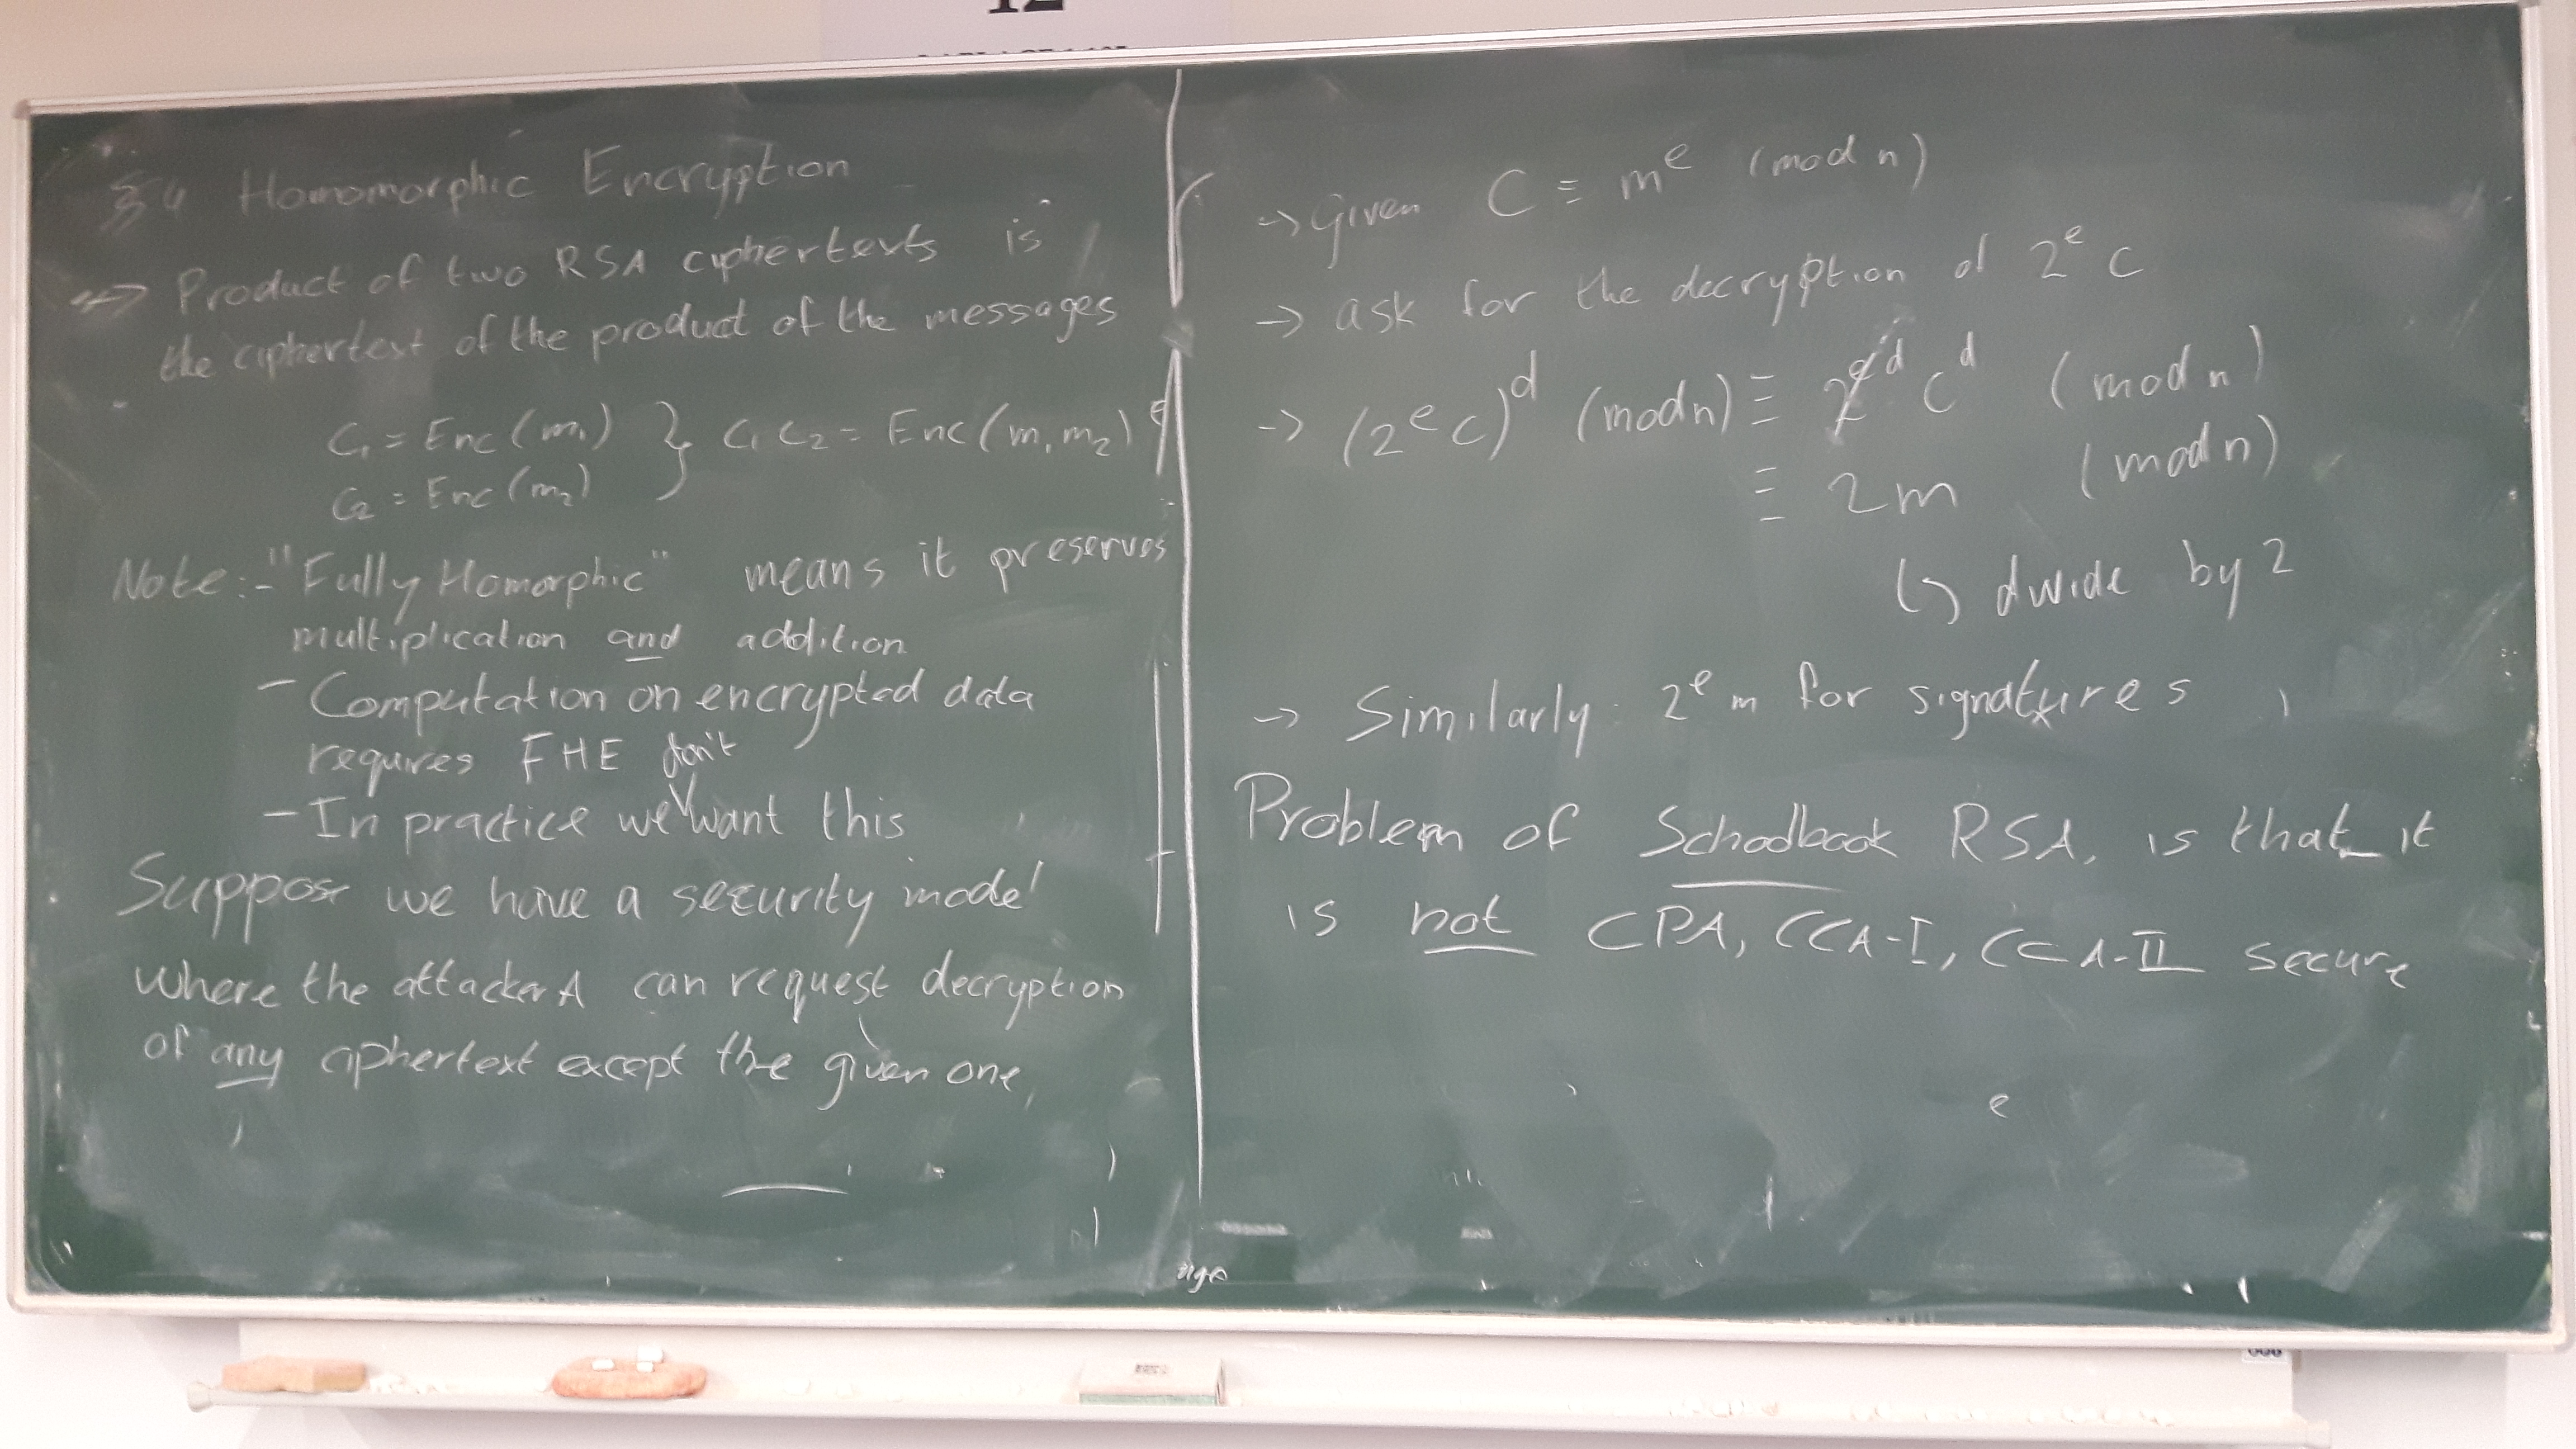 12
§4 Homomorphic Encryption
→ Product of two RSA ciphertexts is
the ciphertext of the product of the messages
C₁ = Enc(m₁) } C₁ C₂ = Enc(m₁ m₂)
C₂ = Enc(m₂)
Note:- "Fully Homorphic" means it preserves
multiplication and addition
- Computation on encrypted data
requires FHE
- In practice we don't want this
Suppose we have a security model
where the attacker A can request decryption
of any ciphertext except the given one,
→ Given C ≡ mᵉ (mod n)
→ ask for the decryption of 2ᵉ C
→ (2ᵉ C)ᵈ (mod n) ≡ 2ᵉᵈ Cᵈ (mod n)
≡ 2m (mod n)
↳ divide by 2
→ Similarly: 2ᵉ m for signatures
Problem of Schoolbook RSA, is that it
is not CPA, CCA-I, CCA-II secure
e